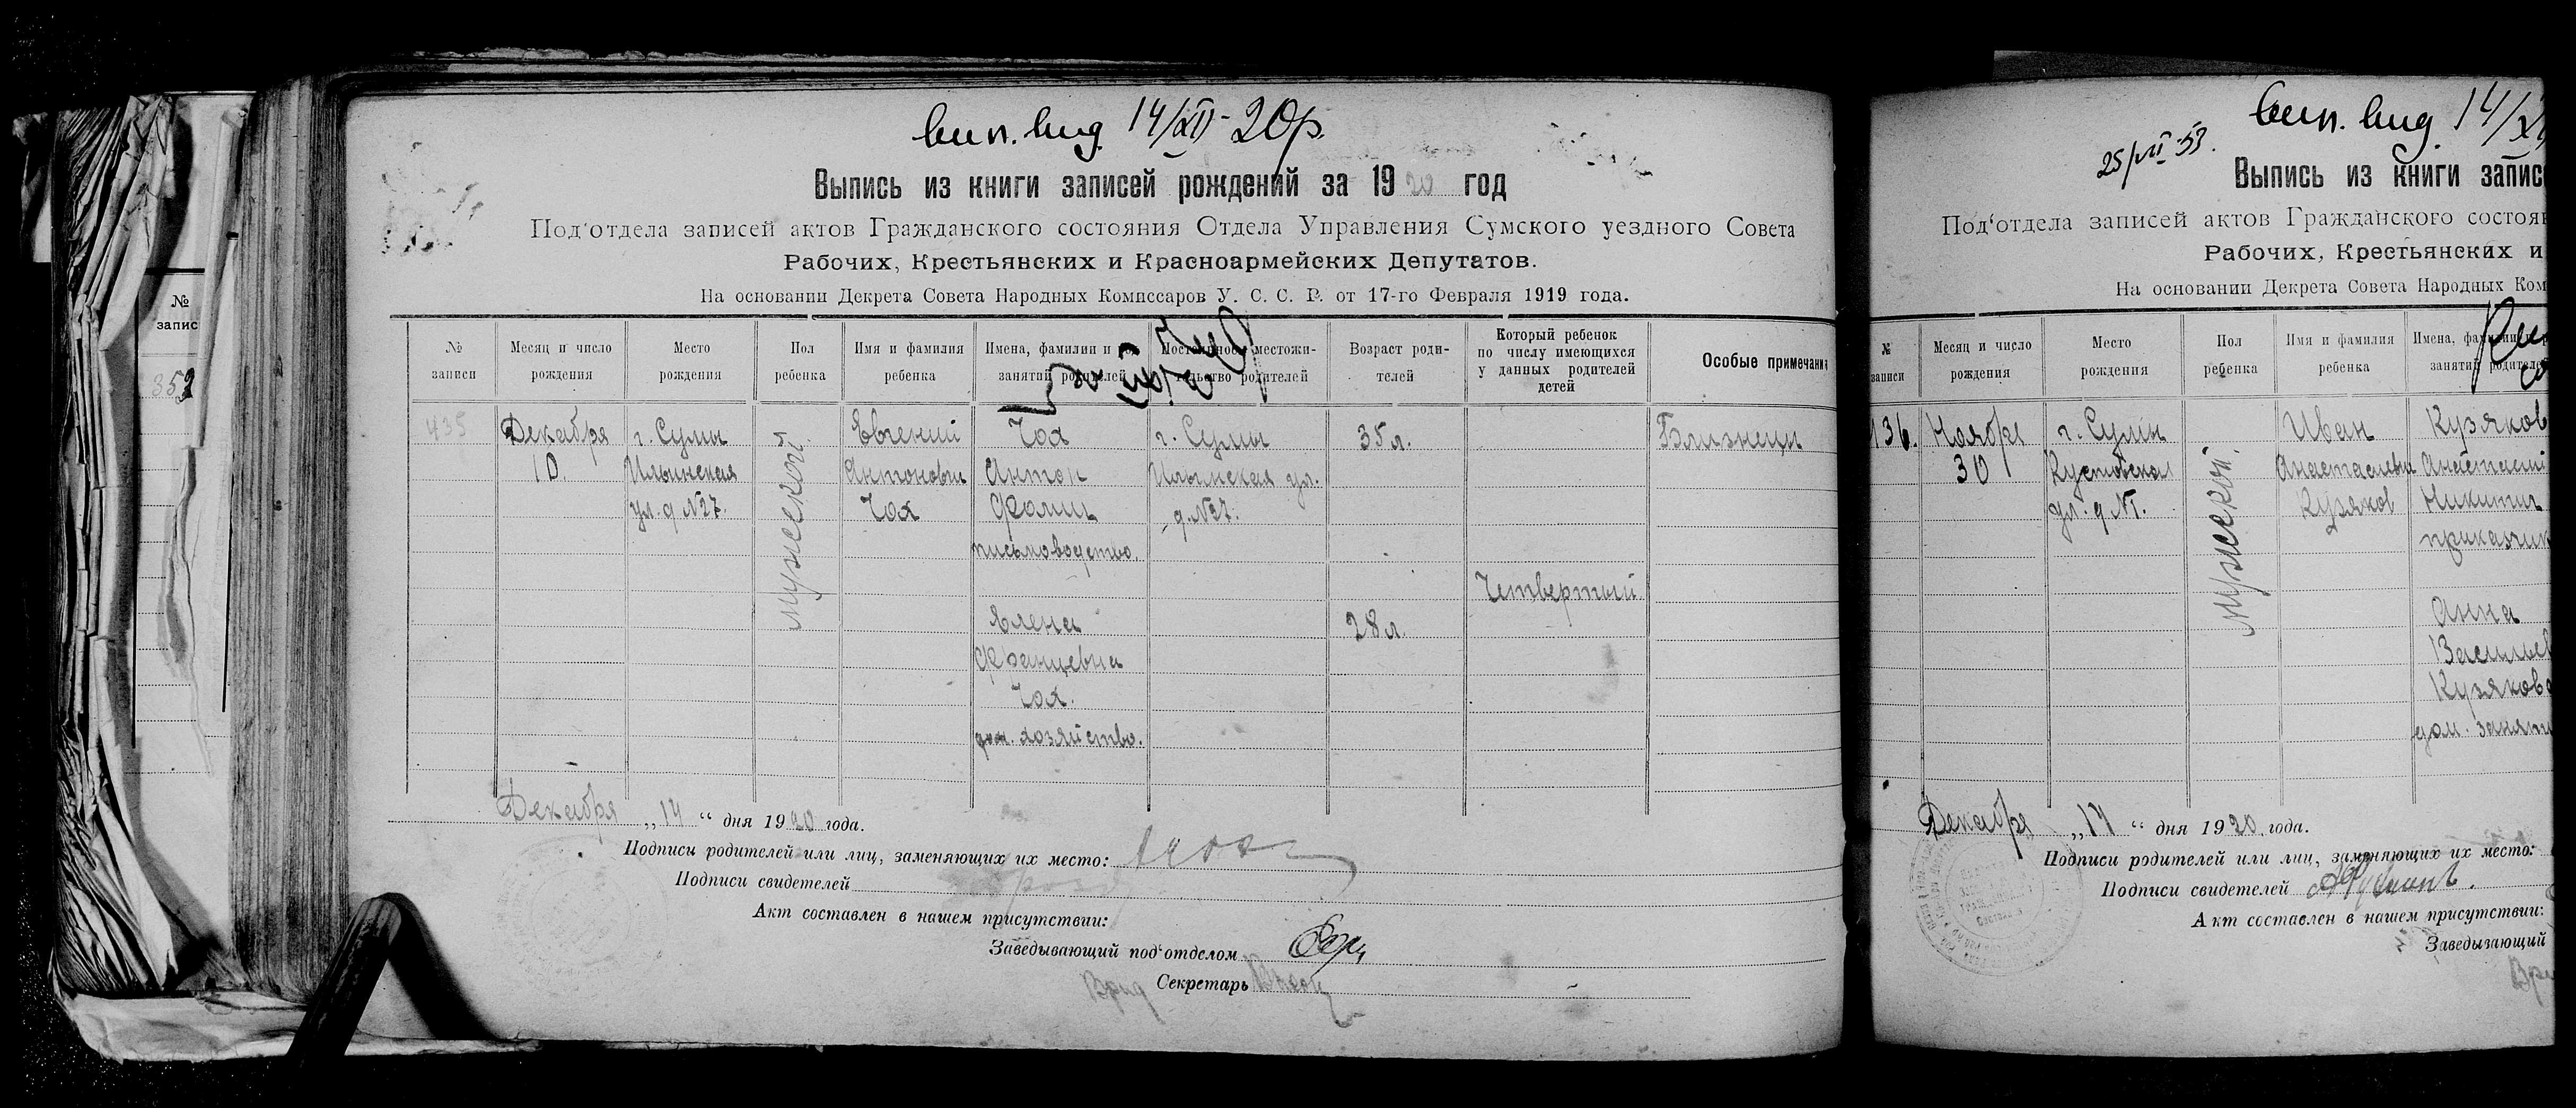 №
запис
353
вип. вид. 14/XII-20р.
Выпись из книги записей рождений за 1920 год
Под‘отдела записей актов Гражданского состояния Отдела Управления Сумского уездного Совета
Рабочих, Крестьянских и Красноармейских Депутатов.
На основании Декрета Совета Народных Комиссаров У. С. С. Р. от 17-го Февраля 1919 года.
№ записи
Месяц и число рождения
Место рождения
Пол ребенка
Имя и фамилия ребенка
Имена, фамилии и занятий родителей
Постоянное местожительство родителей
Возраст родителей
Который ребенок по числу имеющихся у данных родителей детей
Особые примечания
435
Декабря
10.
г. Сумы
Ильинская
ул. д №27.
мужеской
Евгений
Антонович
Чох
Чох
Антон
Фомич
письмоводство.
Елена
Францевна
Чох.
дом. хозяйство.
г. Сумы
Ильинская ул.
д №27.
35 л.
28 л.
Четвертый
Близнецы
Декабря „14“ дня 1920 года.
Подписи родителей или лиц, заменяющих их место:
Подписи свидетелей
Акт составлен в нашем присутствии:
Заведывающий под‘отделом
Врид Секретарь
вип. вид. 14/XI
25/VII-53.
Выпись из книги запис
Под‘отдела записей актов Гражданского состоян
Рабочих, Крестьянских и
На основании Декрета Совета Народных Ком
№ записи
Месяц и число рождения
Место рождения
Пол ребенка
Имя и фамилия ребенка
Имена, фамилии
занятий родителе
136.
Ноября
30
г. Сумы
ул. д №1.
мужеской.
Иван
Анастасиевич
Кузяков
Кузяков
Анастасий
Никитич
приказчик
Анна
Васильев
Кузякова
дом. заняти
Декабря „14“ дня 1920 года.
Подписи родителей или лиц, заменяющих их место:
Подписи свидетелей
Акт составлен в нашем присутствии:
Заведывающий
Вр